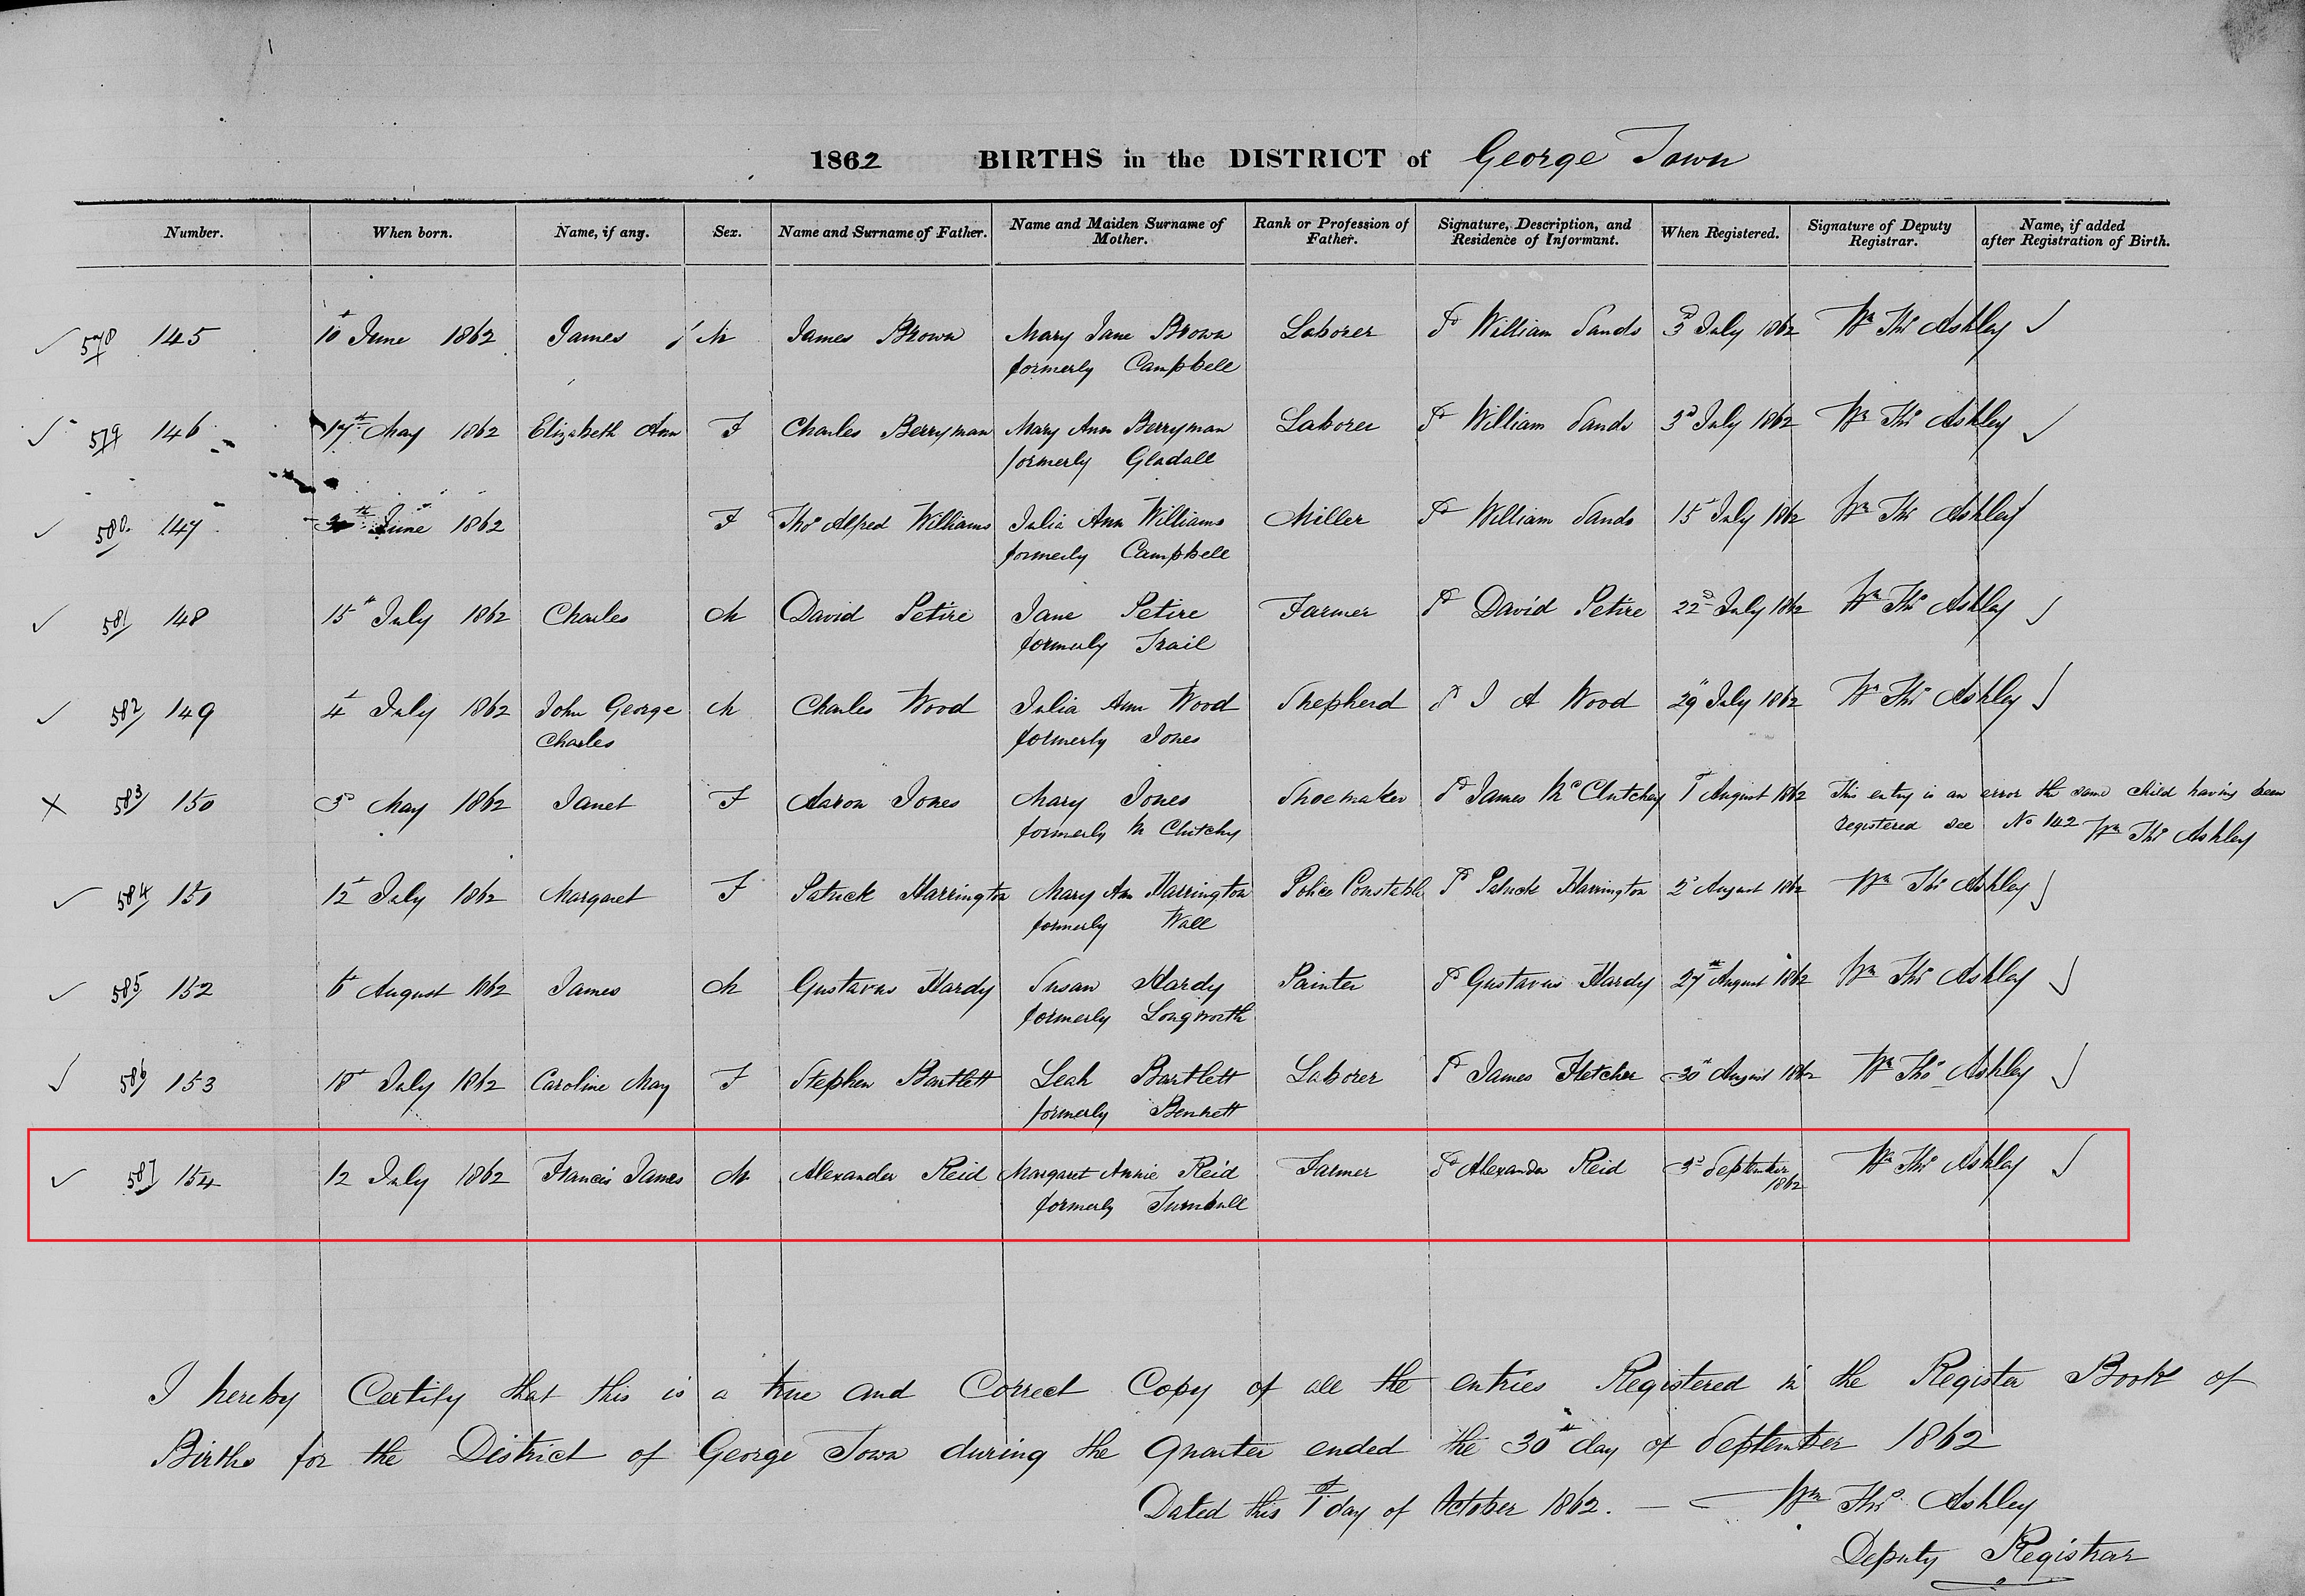 1862 BIRTHS in the DISTRICT of George Town
Number. When born. Name, if any. Sex. Name and Surname of Father. Name and Maiden Surname of Mother. Rank or Profession of Father. Signature, Description, and Residence of Informant. When Registered. Signature of Deputy Registrar. Name, if added after Registration of Birth.
✓ 578 145 10th June 1862 James M James Brown Mary Jane Brown Laborer Sd William Sands 3d July 1862 Wm Thos Ashley ✓
formerly Campbell
✓ 579 146 17th May 1862 Elizabeth Ann F Charles Berryman Mary Ann Berryman Laborer Sd William Sands 3d July 1862 Wm Thos Ashley ✓
formerly Gladall
✓ 580 147 June 1862 F Thos Alfred Williams Julia Ann Williams Miller Sd William Sands 15 July 1862 Wm Thos Ashley ✓
formerly Campbell
✓ 581 148 15th July 1862 Charles M David Petire Jane Petire Farmer Sd David Petire 22d July 1862 Wm Thos Ashley ✓
formerly Trail
✓ 582 149 4th July 1862 John George M Charles Wood Julia Ann Wood Shepherd Sd J A Wood 29 July 1862 Wm Thos Ashley ✓
Charles formerly Jones
X 583 150 3d May 1862 Janet F Aaron Jones Mary Jones Shoemaker Sd James McClutchey 1st August 1862 This entry is an error the same child having been
formerly McClutchy registered see No 142 Wm Thos Ashley
✓ 584 151 12th July 1862 Margaret F Patrick Harrington Mary Ann Harrington Police Constable Sd Patrick Harrington 2d August 1862 Wm Thos Ashley ✓
formerly Wall
✓ 585 152 6th August 1862 James M Gustavus Hardy Susan Hardy Painter Sd Gustavus Hardy 27th August 1862 Wm Thos Ashley ✓
formerly Longworth
✓ 586 153 18th July 1862 Caroline May F Stephen Bartlett Leah Bartlett Laborer Sd James Fletcher 30th August 1862 Wm Thos Ashley ✓
formerly Bennett
✓ 587 154 12 July 1862 Francis James M Alexander Reid Margaret Annie Reid Farmer Sd Alexander Reid 3d September 1862 Wm Thos Ashley ✓
formerly Turnbull
I hereby Certify that this is a true and Correct Copy of all the entries Registered in the Register Book of
Births for the District of George Town during the Quarter ended the 30th day of September 1862
Dated this 1st day of October 1862. — Wm Thos Ashley
Deputy Registrar